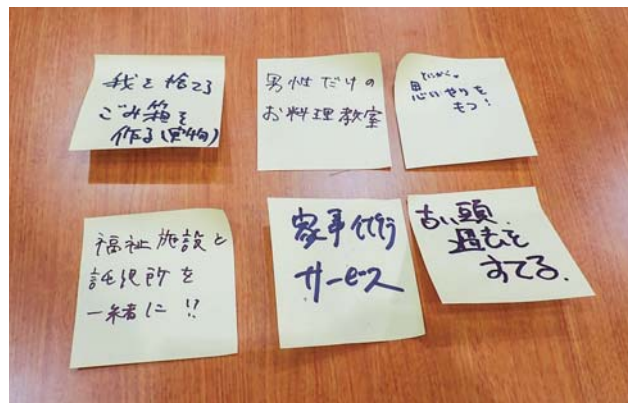 我を捨てる
ごみ箱を
作る(実物)
男性だけの
お料理教室
とにかく、
思いやりを
もつ!
福祉施設と
託児所を
一緒に!?
家事代行
サービス
古い頭、
過去を
すてる.